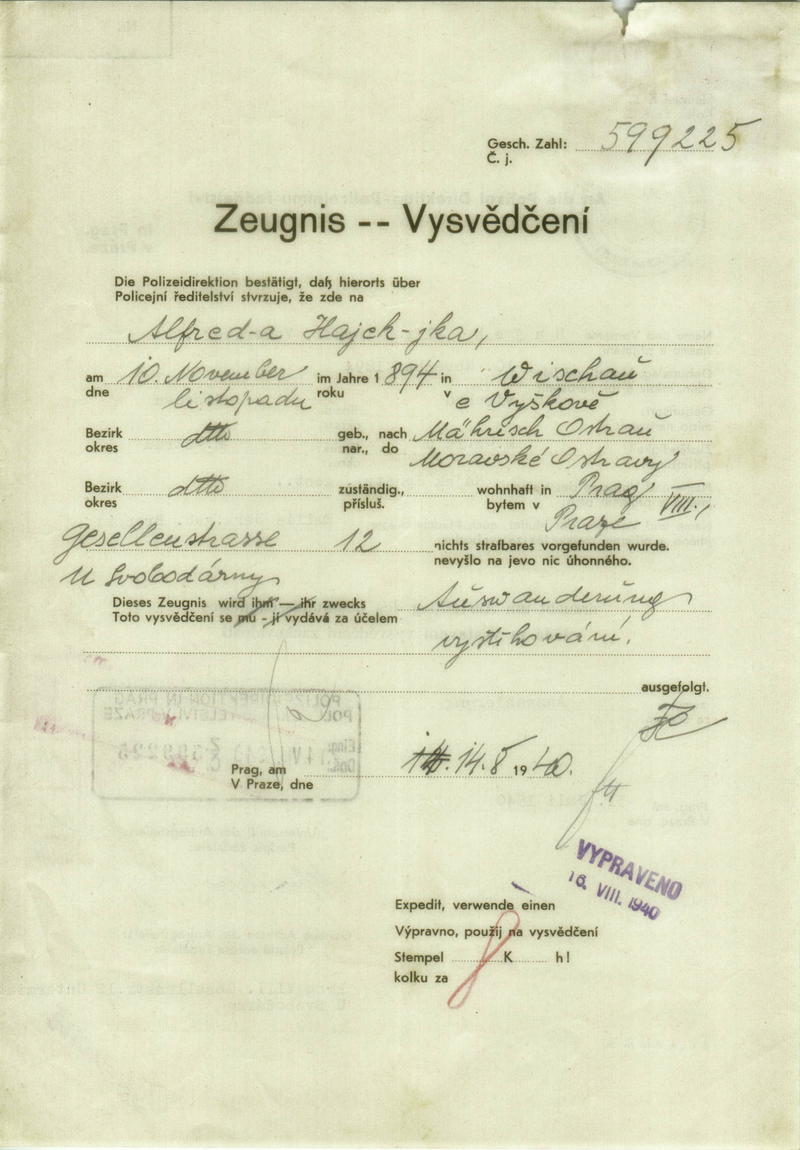 Gesch. Zahl: 599225
Č. j.
Zeugnis -- Vysvědčení
Die Polizeidirektion bestätigt, daß hierorts über
Policejní ředitelství stvrzuje, že zde na
Alfred-a Hajek-jka,
am 10. November im Jahre 1894 in Wischau
dne listopadu roku v e Vyškově
Bezirk dtto geb., nach Mährisch Ostrau
okres nar., do Moravské Ostravy
Bezirk dtto zuständig., wohnhaft in Prag VIII.,
okres přísluš. bytem v Praze
Gesellenstrasse 12 nichts strafbares vorgefunden wurde.
nevyšlo na jevo nic úhonného.
U Svobodárny
Dieses Zeugnis wird ihm — ihr zwecks Auswanderung
Toto vysvědčení se mu - jí vydává za účelem
vystihování.
ausgefolgt.
POLIZEIDIREKTION IN PRAG
Prag, am 14. 8 1940.
V Praze, dne
VYPRAVENO
16. VIII. 1940
Expedit, verwende einen
Výpravno, použij na vysvědčení
Stempel 8 K h!
kolku za